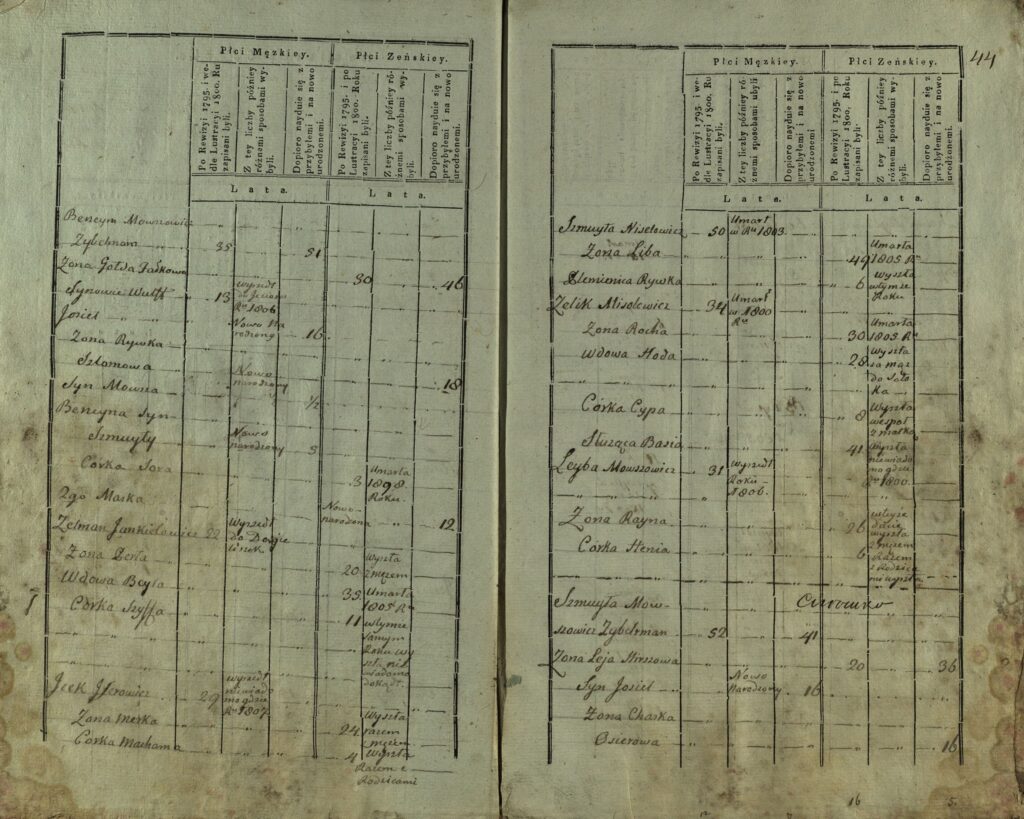 Płci Męzkiey. Płci Zeńskiey.
Po Rewizyi 1795. i we-
dle Lustracyi 1800. Ru
zapisani byli.
Z tey liczby późniey
różnemi sposobami wy-
byli.
Dopioro nayduie się z
przybyłemi i na nowo
urodzonemi.
Po Rewizyi 1795. i po
Lustracyi 1800. Roku
zapisani byli.
Z tey liczby późniey ró-
żnemi sposobami wy-
byli.
Dopioro nayduie się z
przybyłemi i na nowo
urodzonemi.
Lata. Lata.
Bencym Mowszowicz
35 51
Zona Golda 30 46
13 Wyszedł R 1806
Josiel Nowo Na
rodzony 16
Zona Rywka
Szlomowa 18
Syn Mowsza Nowo
narodzony ½
Bencyna Syn
Szmuyły Nowo
narodzony 3
Corka Sora 3 Umarła
Roku.
2go Maska Nowo
narodzona 12
Zelman Jankielowicz 22 Wyszedł
Zona Perla 20 Wyszła
z męzem
Wdowa Beyla 35 Umarła
1805 R
Corka Szyffa 11 wtymze
samym
Roku wy
29 wyszedł
niewiado
mo gdzie
R 1807.
Zona Merka 24 Wyszła
razem
z męzem
Corka Machama 4 Wyszła
Razem z
Rodzicami
44
Płci Męzkiey. Płci Zeńskiey.
Po Rewizyi 1795. i we-
dle Lustracyi 1800. Ru
zapisani byli.
Z tey liczby późniey ró-
żnemi sposobami ubyli
Dopioro nayduie się z
przybyłemi i na nowo
urodzonemi.
Po Rewizyi 1795. i po
Lustracyi 1800. Roku
zapisani byli.
Z tey liczby późniey
różnemi sposobami wy-
byli.
Dopioro nayduie się z
przybyłemi i na nowo
urodzonemi.
Lata. Lata.
Szmuyła Niselowicz 50 Umarł
w R 1803.
Zona Liba 49 Umarła
1805 R
Rywka 6 Wyszła
wtymze
Roku
Zelik 34 Umarł
w 1800
R
Zona Rocha 30 Umarła
1805 R
Wdowa Hoda 28 Wyszła
za mąz
Córka Cypa 8 Wyszła
wespoł
z matką
Słuząca Basia 41 Wyszła
niewiado
mo gdzie
R 1800.
Leyba Mowszowicz 31 Wyszedł
Roku
1806.
Zona Rayna 26
wyszła
z męzem
Córka Henia 6 Razem
z Rodzica
mi wyszła
Szmuyła Mow-
szowicz Zybelrman 52 41
Zona Leja Hirszowa 20 36
Syn Josiel Nowo
Narodzony 16
Zona Chaska
Osierowa 16
16 5.